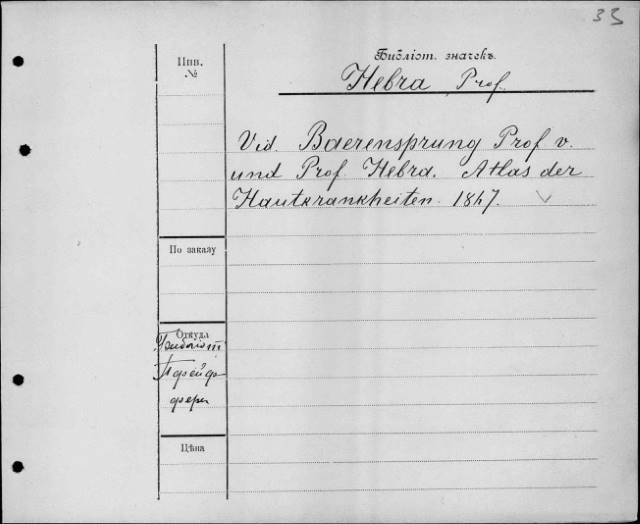 33
Инв.
№
Библіот. значекъ.
Hebra Prof.
Vid. Baerensprung Prof v.
und Prof. Hebra. Atlas der
Hautkrankheiten. 1847.
По заказу
Откуда
Библіот
Пфейф
фера
Цѣна